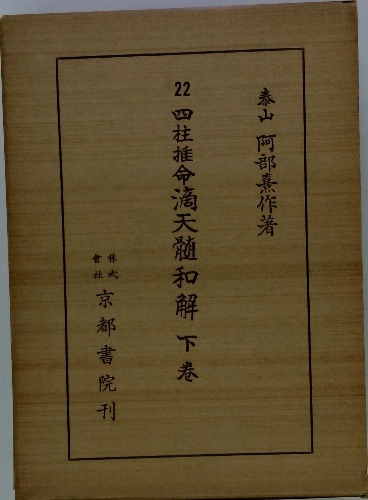 泰山 阿部熹作著
22 四柱推命滴天髄和解 下巻
株式會社 京都書院刊